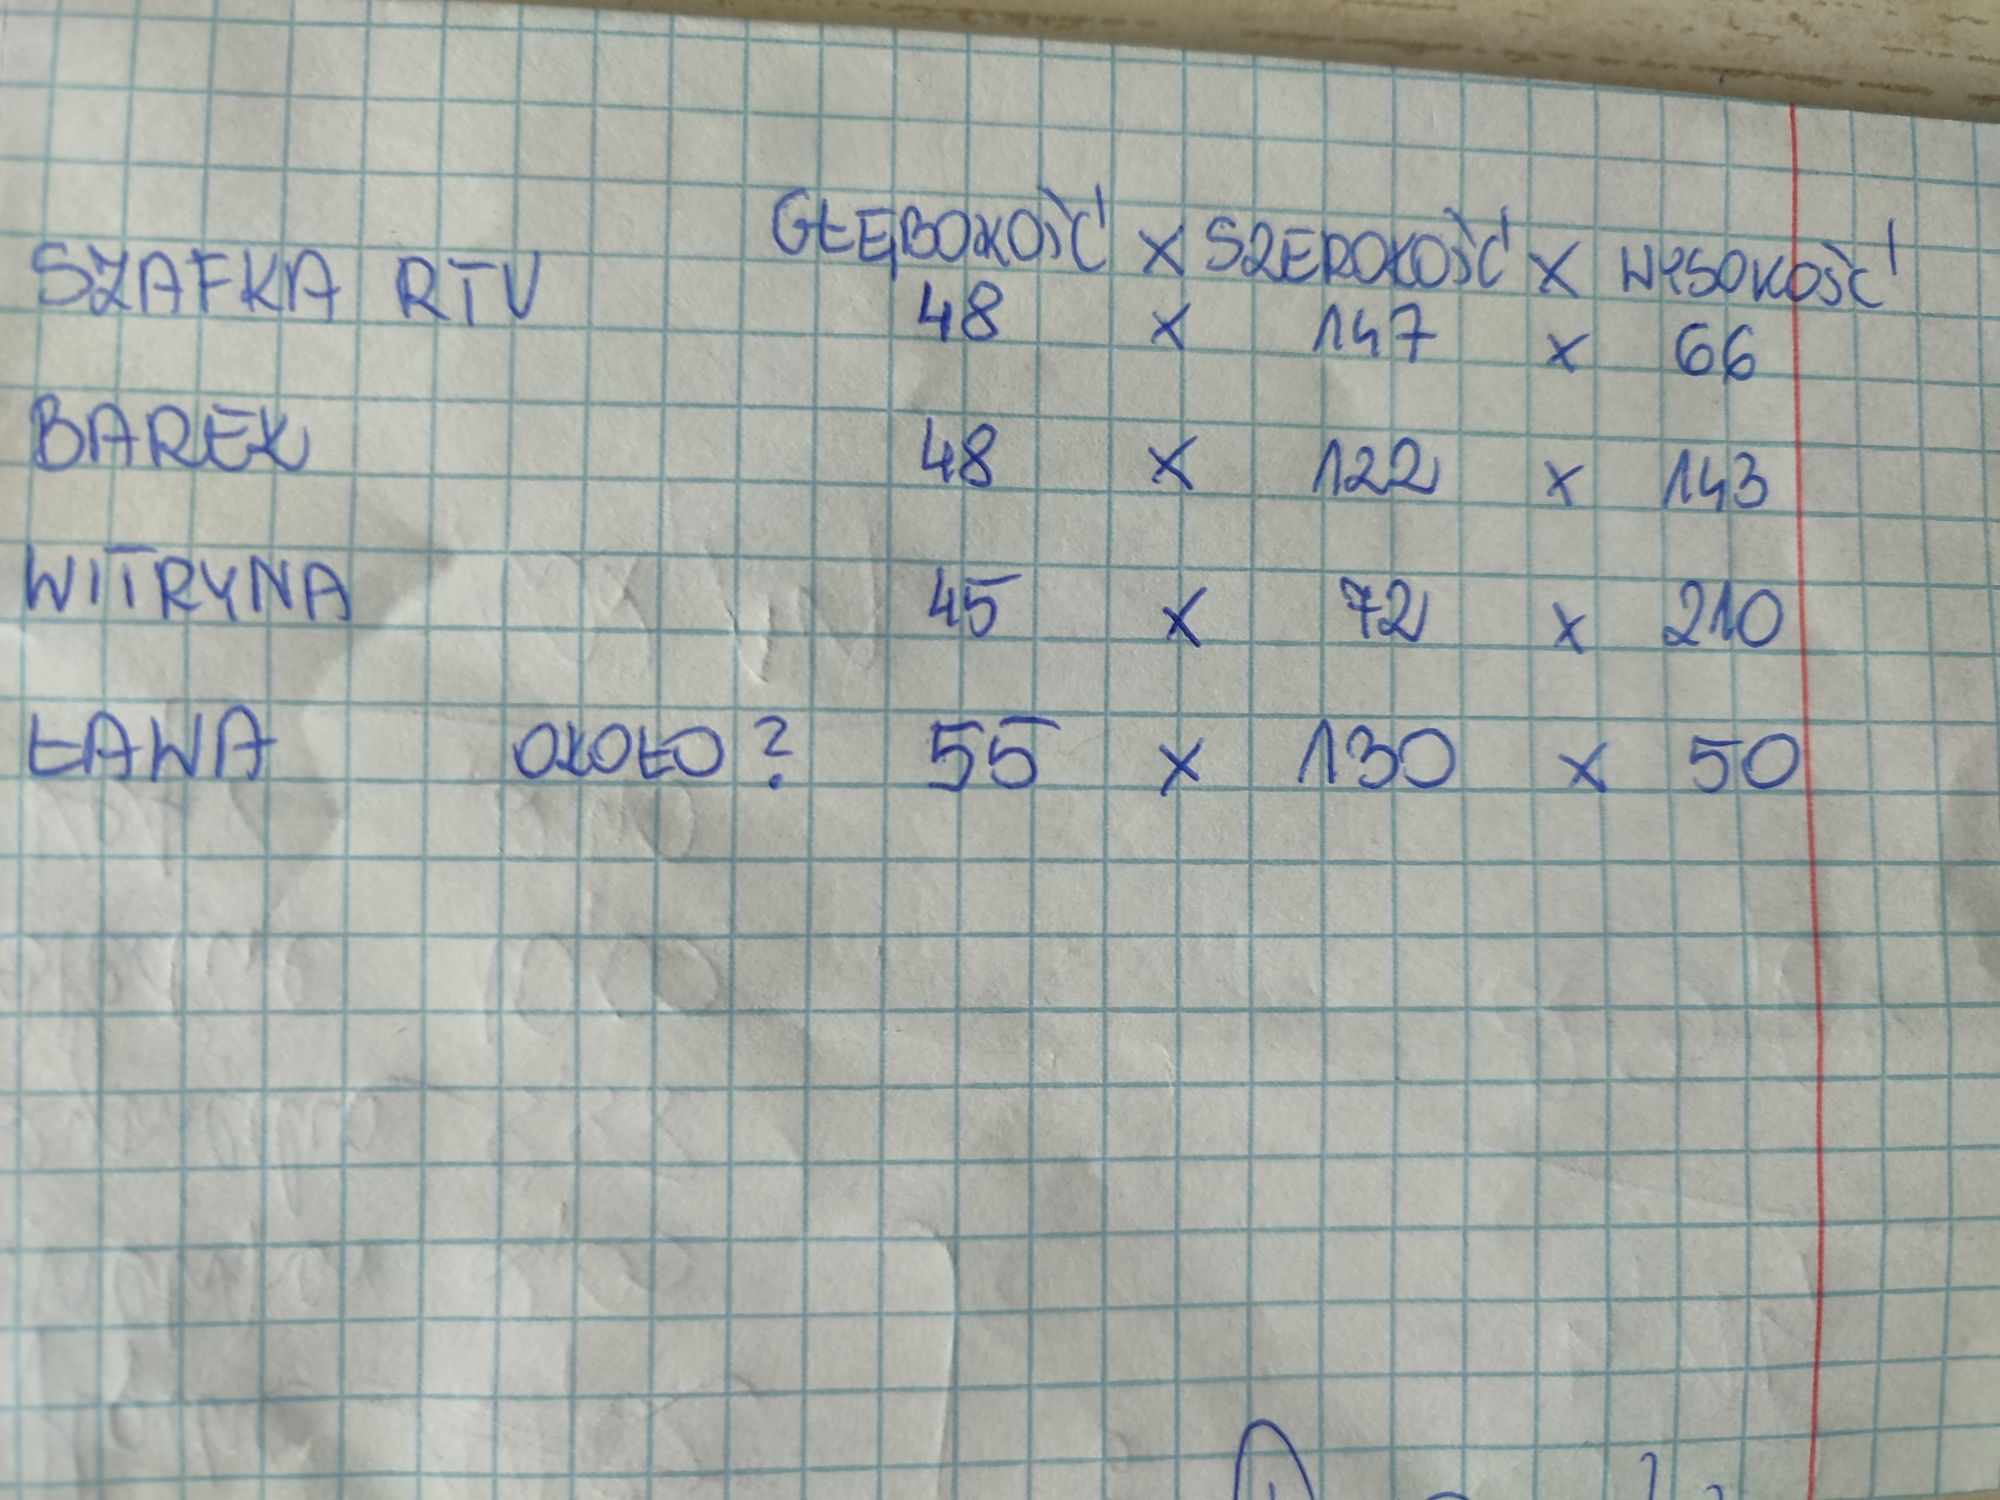 GŁĘBOKOŚĆ x SZEROKOŚĆ x WYSOKOŚĆ
SZAFKA RTV 48 x 147 x 66
BAREK 48 x 122 x 143
WITRYNA 45 x 72 x 210
ŁAWA OKOŁO? 55 x 130 x 50